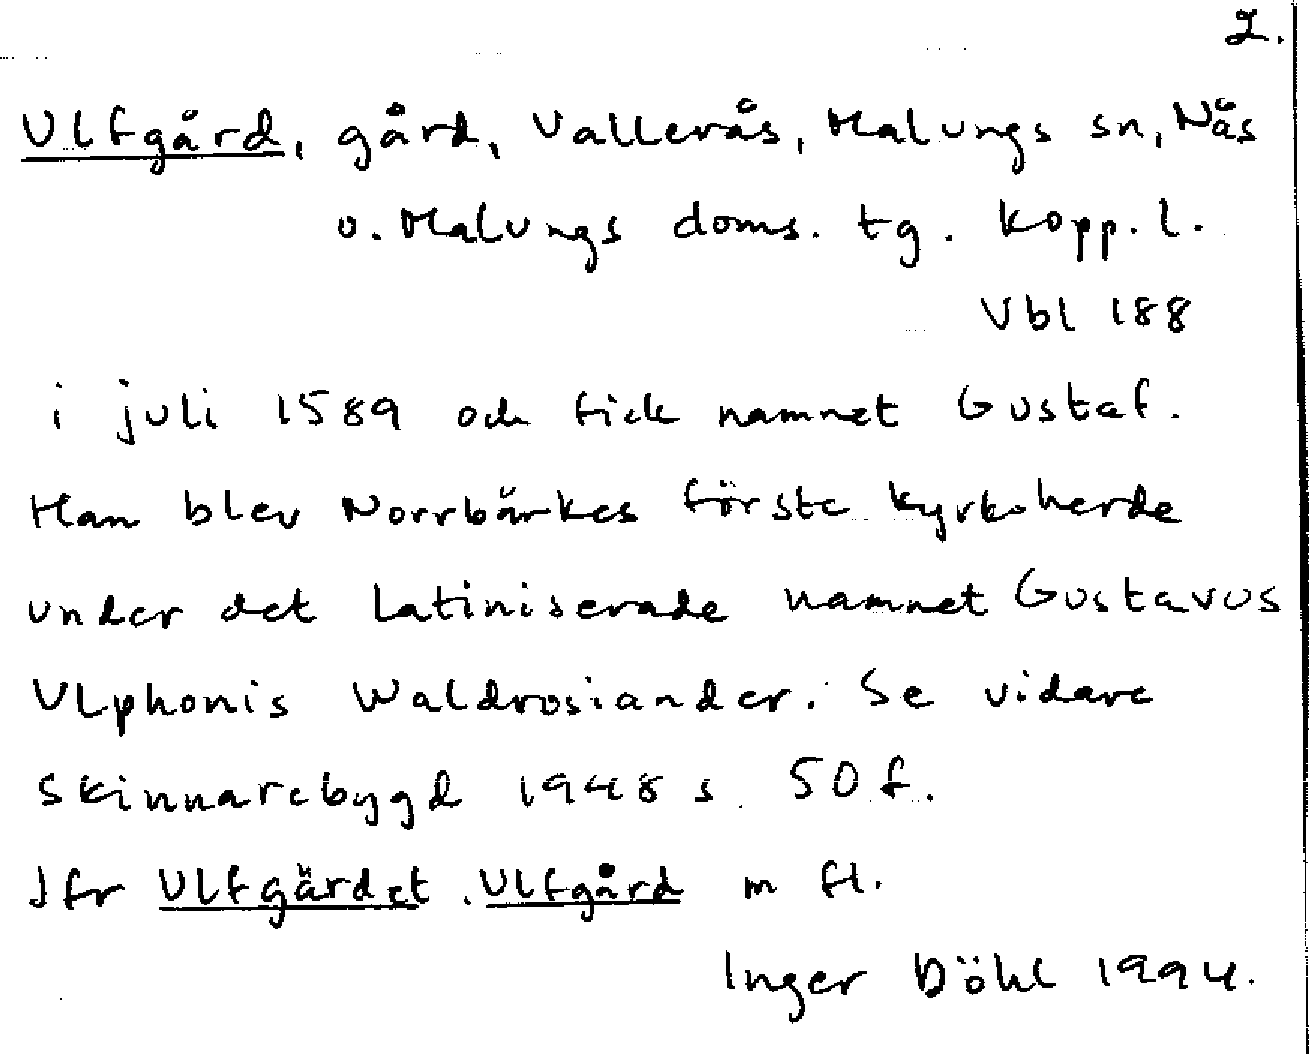 2.
Ulfgård, gård, Vallerås, Malungs sn, Nås
o. Malungs doms. tg. Kopp. l.
Vbl 188
i juli 1589 och fick namnet Gustaf.
Han blev Norrbärkes förste kyrkoherde
under det latiniserade namnet Gustavus
Ulphonis Waldrosiander. Se vidare
Skinnarebygd 1948 s. 50 f.
Jfr Ulfgärdet. Ulfgård m fl.
Inger Döhl 1994.